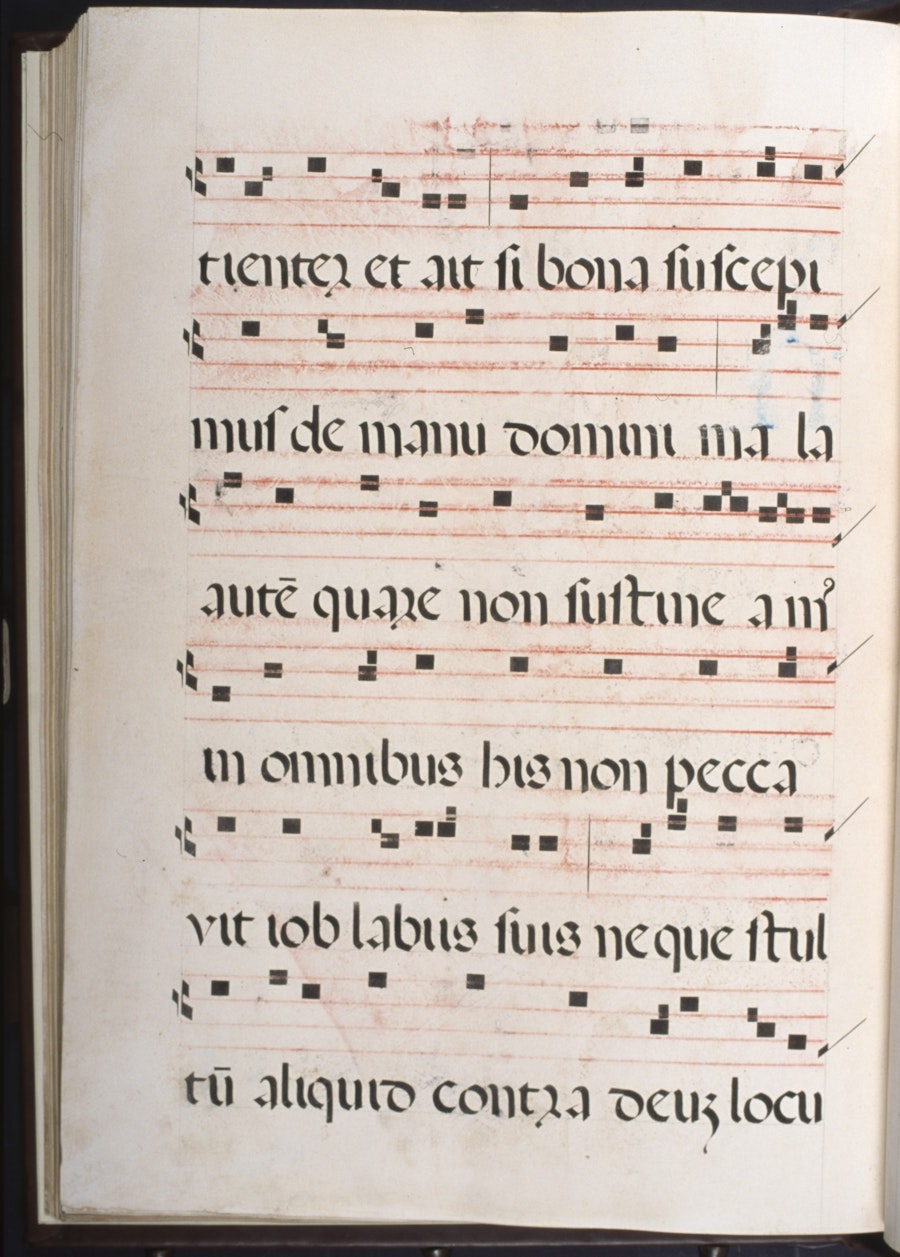 tienter et ait si bona suscepi
mus de manu domini ma la
autē quare non sustine a mꝰ
in omnibus his non pecca
vit iob labiis suis neque stul
tū aliquid contra deuz locu